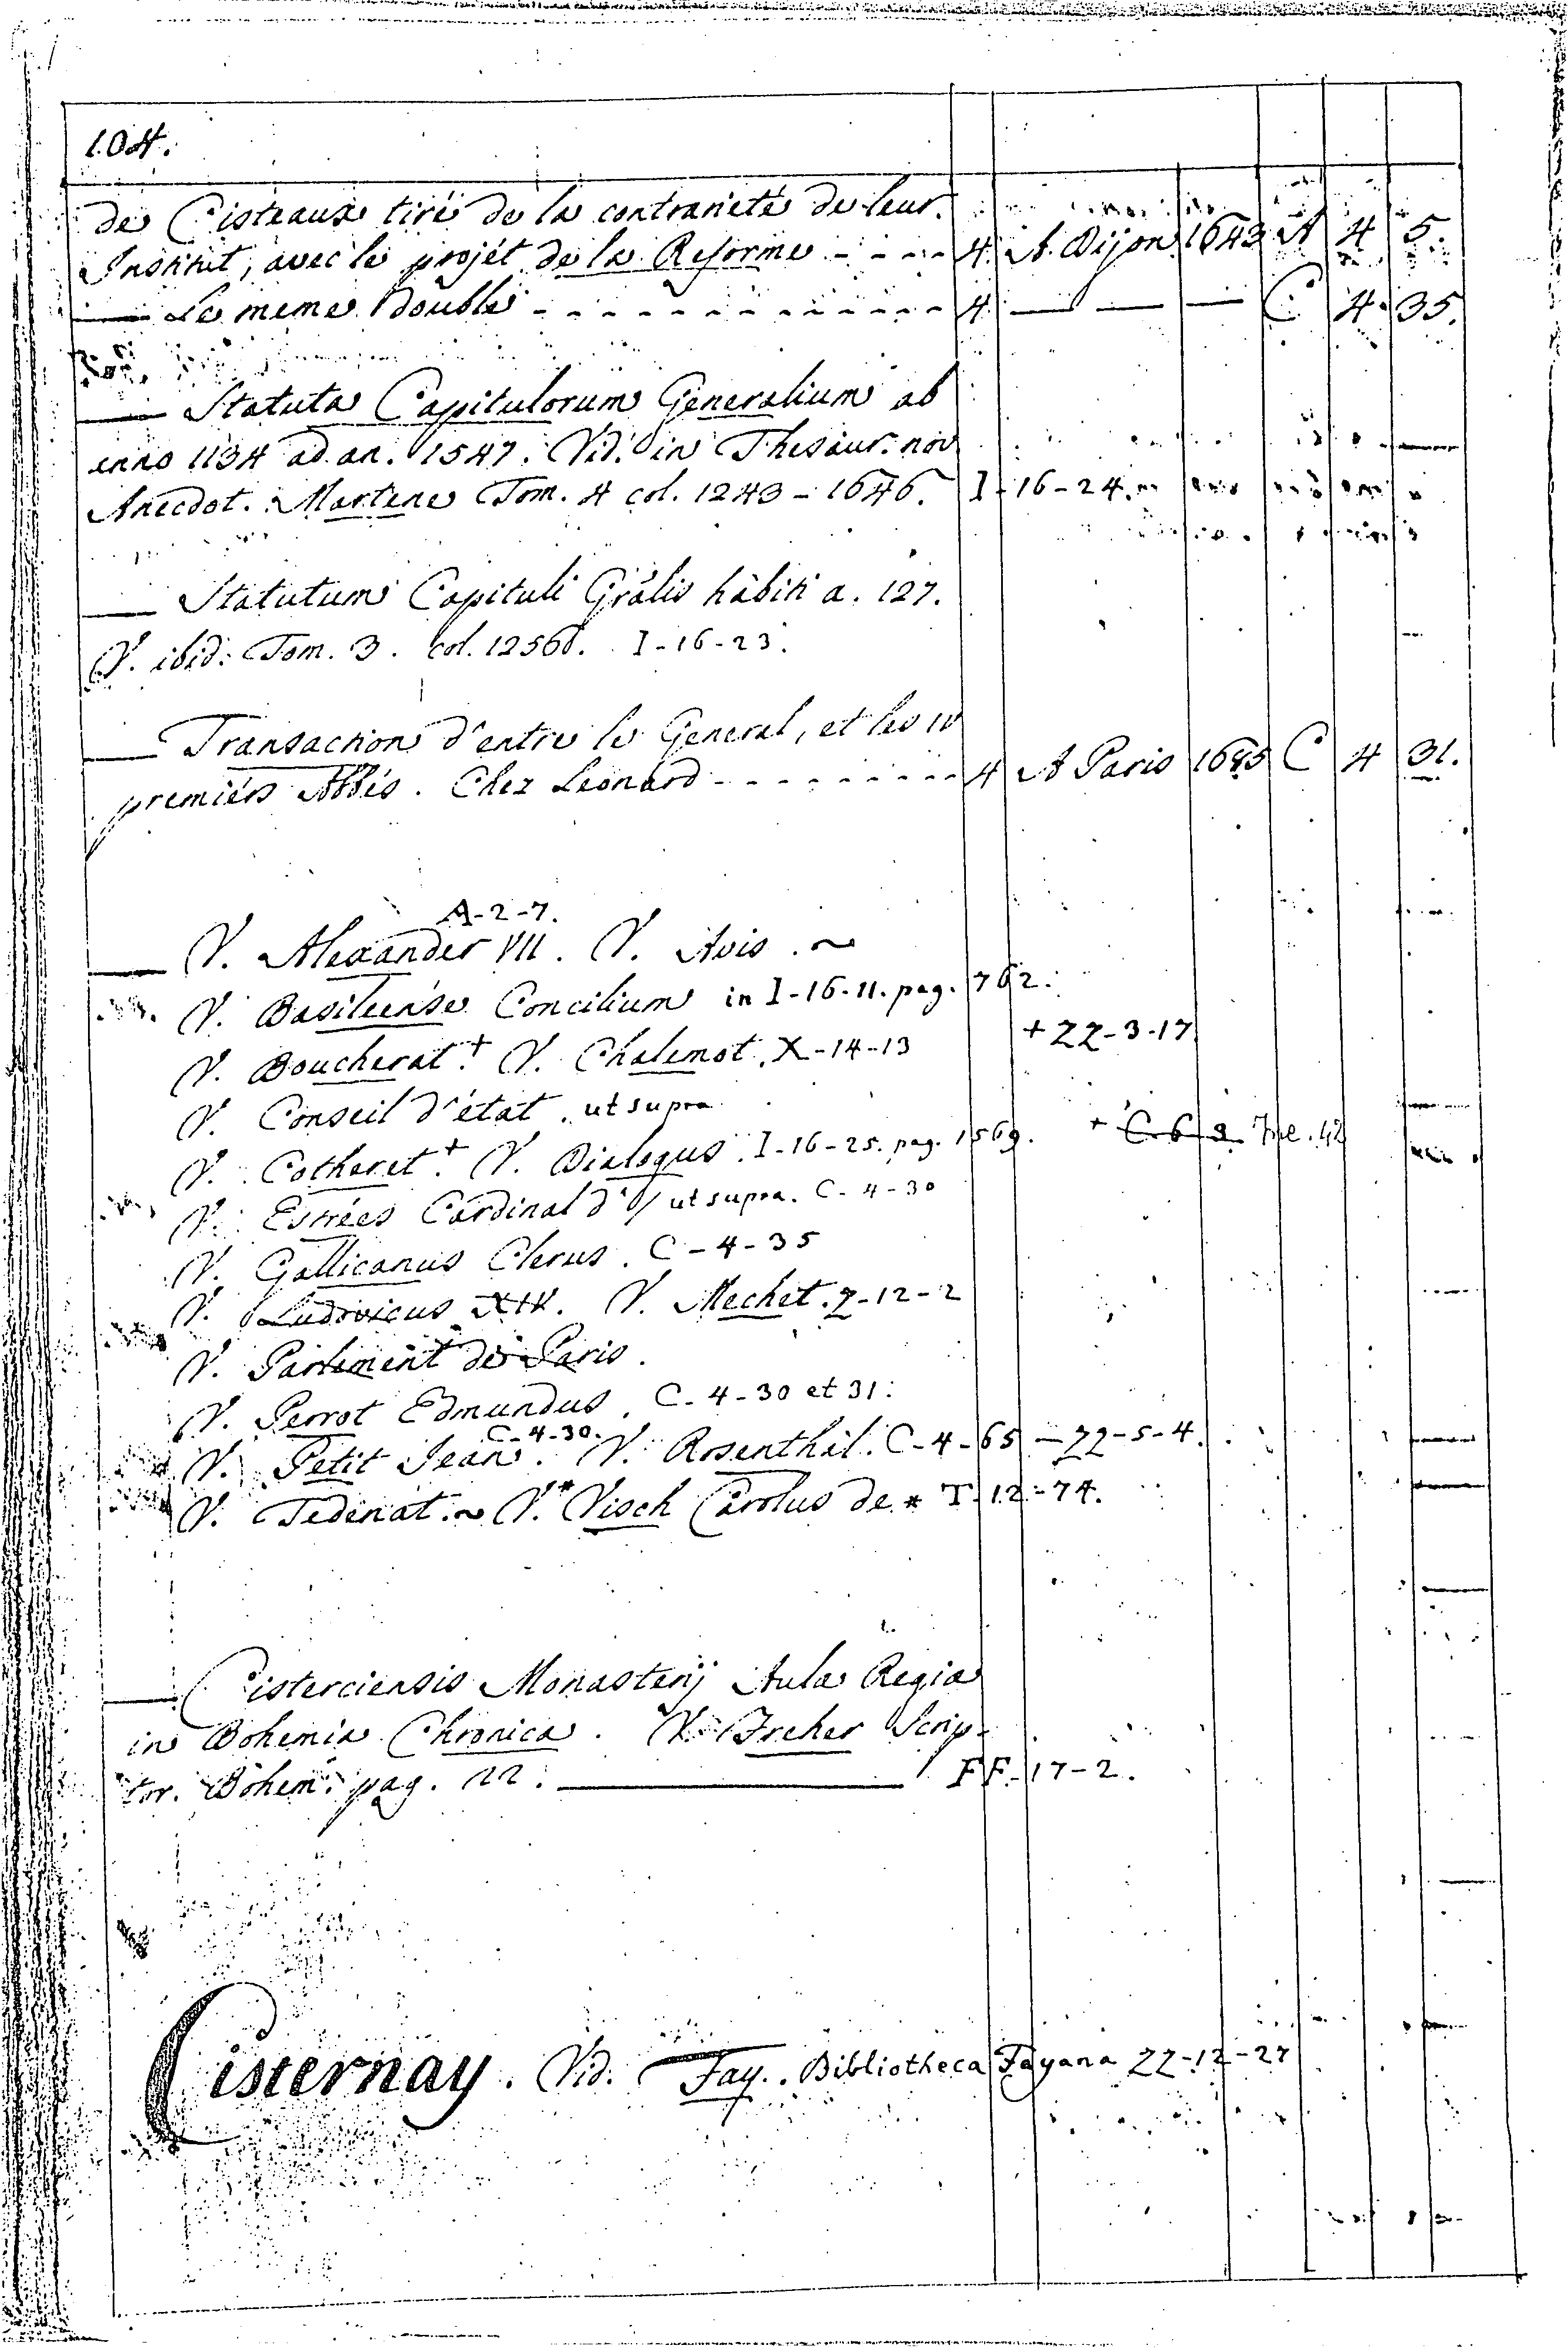 104.
de Cisteaux tiré de la contrarieté de leur
Institut, avec le projét de la Reforme - - - - 4. A Dijon 1643 A 4 5.
— Le meme double - - - - - - - - - - - - - 4. — — — C 4. 35.
— Statuta Capitulorum Generalium ab
anno 1134 ad an. 1547. Vid. in Thesaur. nov
Anecdot. Martene Tom. 4 col. 1243 - 1646. I-16-24.
— Statutum Capituli Grâlis habiti a. 127.
V. ibid. Tom. 3. col. I-16-23.
— Transaction d'entre le General, et les IV
premiérs Abbés. Chez Leonard - - - - - - - - 4 A Paris C 4 31.
A-2-7.
— V. Alexander VII. V. Avis. ~
V. Basileense Concilium in I-16-11. pag. 762.
V. Boucherat.+ V. Chalemot. X-14-13 + ZZ-3-17
V. Conseil d'état. ut supra
V. Cotheret.+ V. Dialogus. I-16-25. pag. 1569. + C 6
V. Estrées Cardinal d'/ ut supra. C-4-30
V. Gallicanus Clerus. C-4-35
V. Ludovicus XIV. V. Mechet. Z-12-2
V. Parlement de Paris.
V. Perrot Edmundus. C-4-30 et 31.
C-4-30.
V. Petit Jean. V. Rosenthal. C-4-65 - ZZ-5-4.
V. Tedenat. ~ V.* Visch Carolus de * T-12-74.
— Cisterciensis Monasterij Aula Regia
in Bohemia Chronica. V. Freher Scrip-
tor. Bohem. pag. 22. — FF-17-2.
Cisternay. Vid. Fay. Bibliotheca Fayana ZZ-12-27